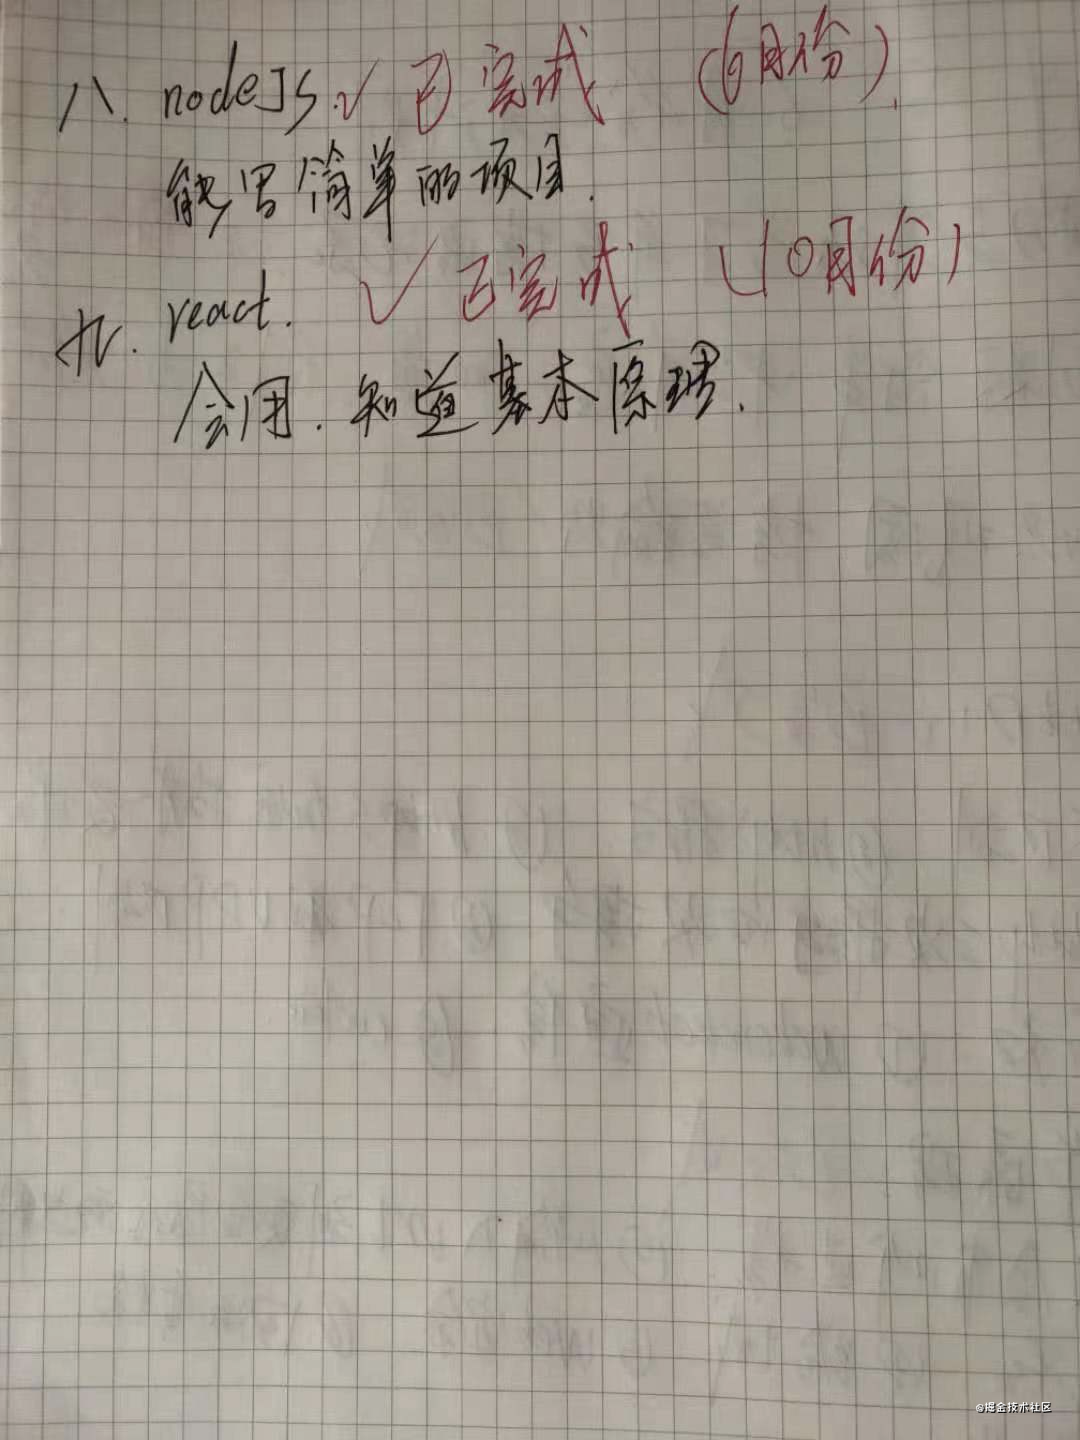 八. nodeJS ✓ 已完成 (6月份).
能写简单的项目.
九. react. ✓ 已完成 (10月份)
会用. 知道基本原理.
@掘金技术社区